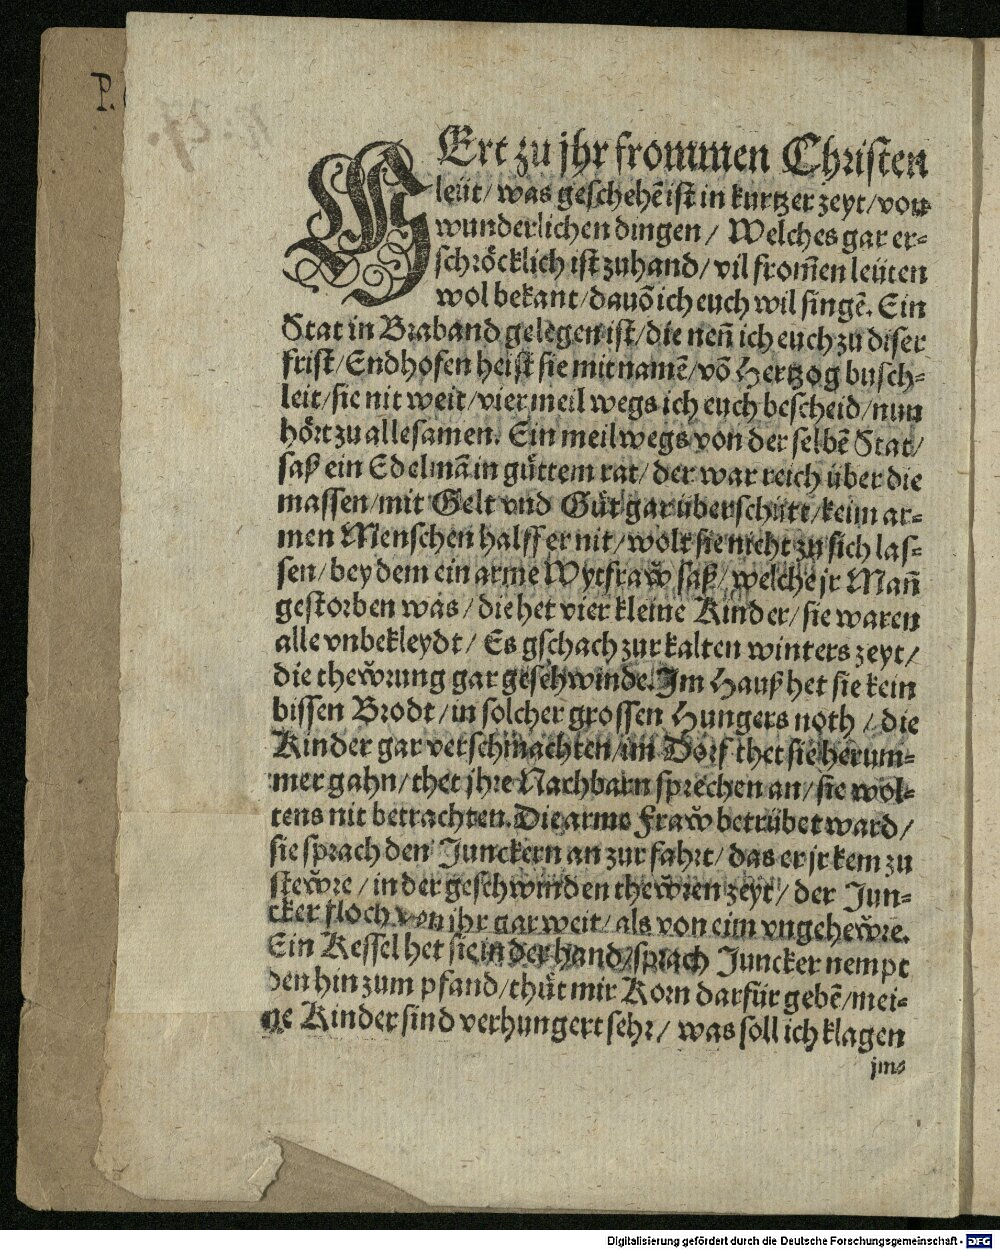 P.
MErt zu jhr frommen Christen
leüt / was geschehē ist in kurtzer zeyt / von
wunderlichen dingen / Welches gar er⸗
schröcklich ist zuhand / vil from̄en leüten
wol bekant / dauō ich euch wil singē. Ein
Stat in Braband gelegen ist / die nen̄ ich euch zu diser
frist / Endhofen heist sie mit namē / vō Hertzog busch⸗
leit / sie nit weit / vier meil wegs ich euch bescheid / nun
hört zu allesamen. Ein meil wegs von der selbē Stat /
saß ein Edelmā in guͤttem rat / der war reich über die
massen / mit Gelt vnd Guͤt gar überschütt / keim ar⸗
men Menschen halff er nit / wolt sie nicht zu sich las⸗
sen / bey dem ein arme Wytfraw̌ saß / welche jr Man̄
gestorben was / die het vier kleine Kinder / sie waren
alle vnbekleydt / Es gschach zur kalten winters zeyt /
die thew̌rung gar geschwinde. Im Hauß het sie kein
bissen Brodt / in solcher grossen Hungers noth / die
Kinder gar verschmachten / im Dorf thet sie herum⸗
mer gahn / thet jhre Nachbarn sprechen an / sie wol⸗
tens nit betrachten. Die arme Fraw̌ betrübet ward /
sie sprach den Junckern an zur fahrt / das er jr kem zu
stew̌re / in der geschwinden thew̌ren zeyt / der Jun⸗
cker floch von jhr gar weit / als von eim vngehew̌re.
Ein Kessel het sie in der hand / sprach Juncker nempt
den hin zum pfand / thuͤt mir Korn darfür gebē / mei⸗
ne Kinder sind verhungert sehr / was soll ich klagen
jm⸗
Digitalisierung gefördert durch die Deutsche Forschungsgemeinschaft - DFG